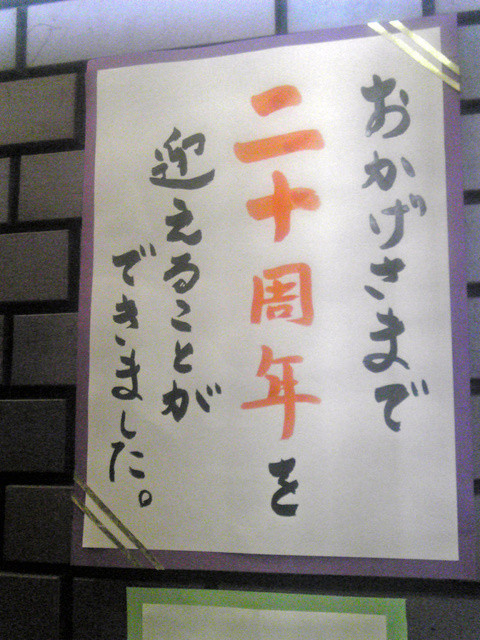 おかげさまで
二十周年を
迎えることが
できました。